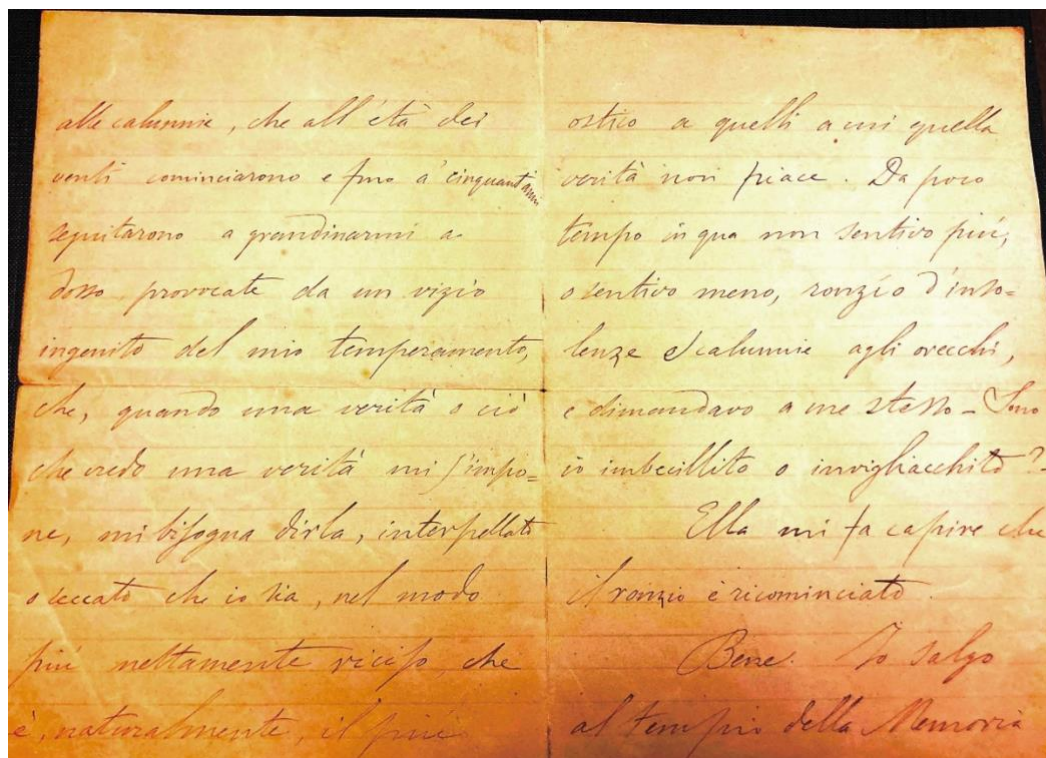 alle calunnie, che all'età dei
venti cominciarono e fino a' cinquant'anni
seguitarono a grandinarmi a-
dosso, provocate da un vizio
ingenito del mio temperamento,
che, quando una verità o ciò
che credo una verità mi s'impo=
ne, mi bisogna dirla, interpellato
o seccato che io sia, nel modo
più nettamente riciso, che
è, naturalmente, il più
ostico a quelli a cui quella
verità non piace. Da poco
tempo in qua non sentivo più,
o sentivo meno, ronzío d'inso=
lenze e calunnie agli orecchi,
e dimandavo a me stesso – Sono
io imbecillito o invigliacchito? –
Ella mi fa capire che
il ronzio è ricominciato.
Bene. Io salgo
al tempio della Memoria